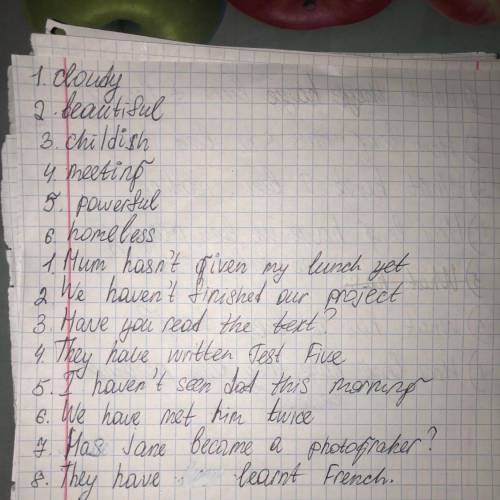 1. cloudy
2. beautiful
3. childish
4. meeting
5. powerful
6. homeless
1. Mum hasn't given my lunch yet
2. We haven't finished our project
3. Have you read the text?
4. They have written Test Five
5. I haven't seen dad this morning
6. We have met him twice
7. Has Jane became a photograker?
8. They have learnt French.